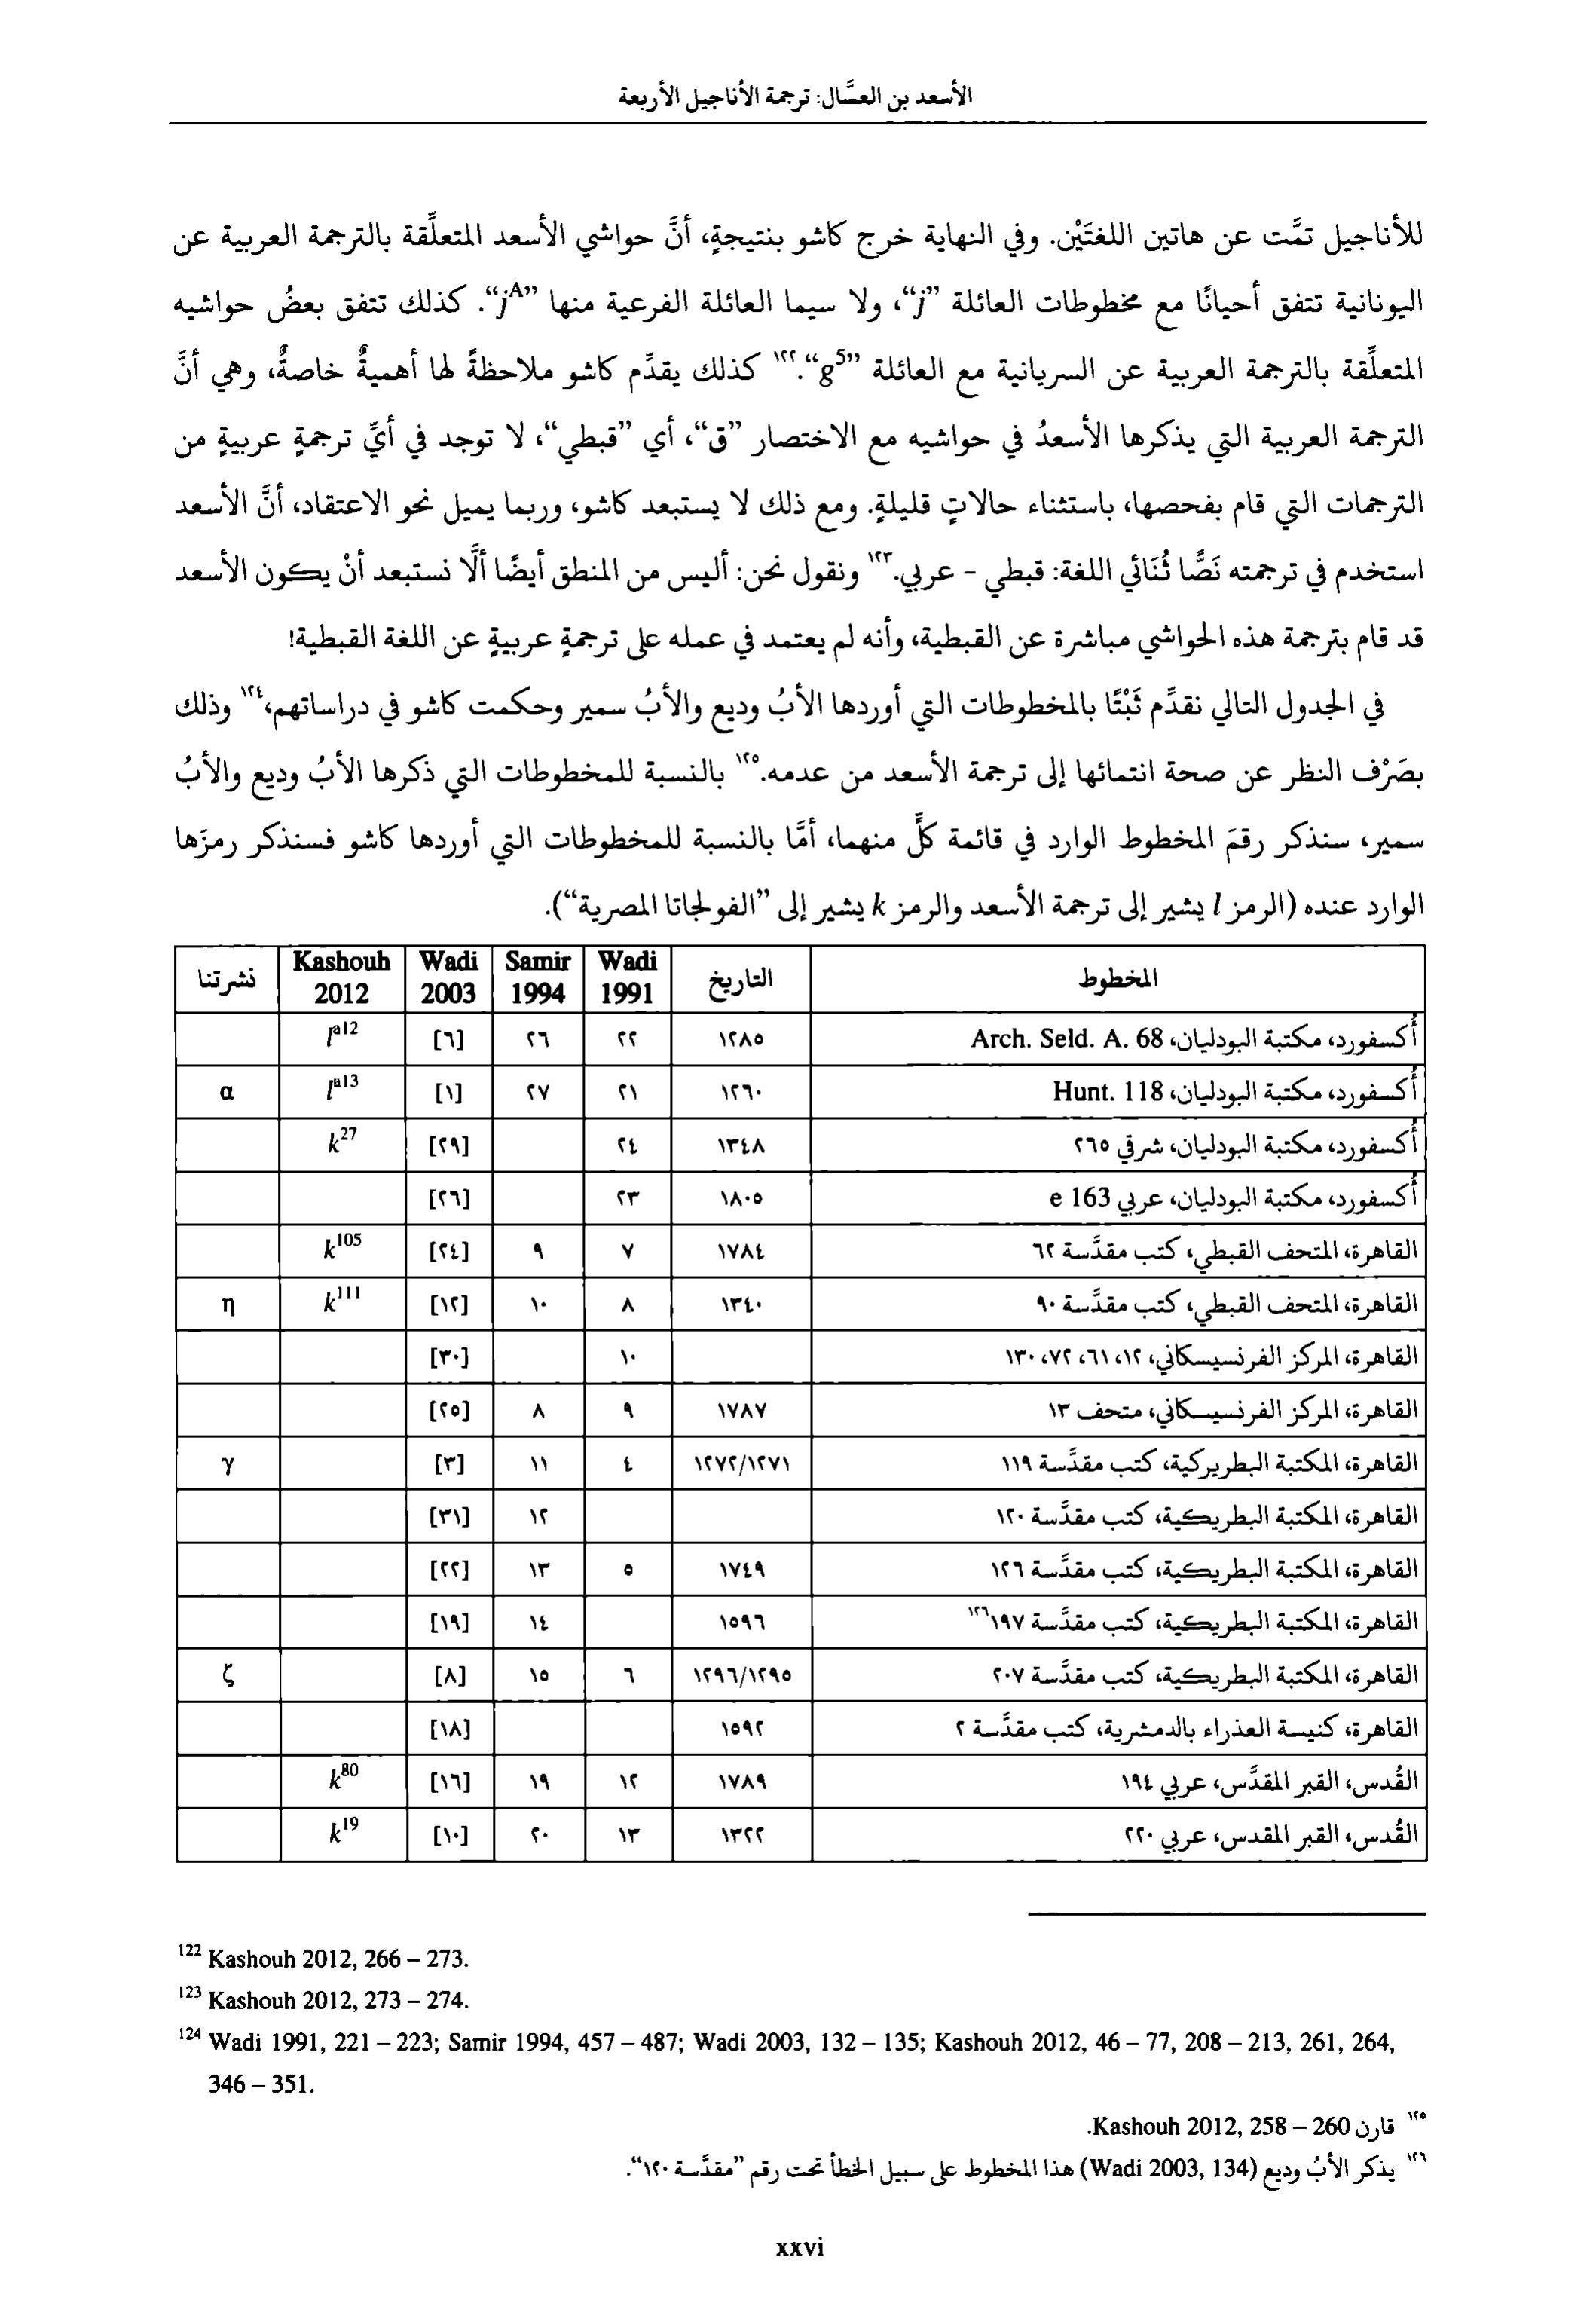 الأسعد بن العسَّال: ترجمة الأناجيل الأربعة
للأناجيل تمَّت عن هاتين اللغتَيْن. وفي النهاية خرج كاشو بنتيجةٍ، أنَّ حواشي الأسعد المتعلِّقة بالترجمة العربية عن
اليونانية تتفق أحيانًا مع مخطوطات العائلة ”j“، ولا سيما العائلة الفرعية منها ”jᴬ“. كذلك تتفق بعضُ حواشيه
المتعلِّقة بالترجمة العربية عن السريانية مع العائلة ”g⁵“.١٢٢ كذلك يقدِّم كاشو ملاحظةً لها أهميةٌ خاصةٌ، وهي أنَّ
الترجمة العربية التي يذكرها الأسعدُ في حواشيه مع الاختصار ”ق“، أي ”قبطي“، لا توجد في أيِّ ترجمةٍ عربيةٍ من
الترجمات التي قام بفحصها، باستثناء حالاتٍ قليلةٍ. ومع ذلك لا يستبعد كاشو، وربما يميل نحو الاعتقاد، أنَّ الأسعد
استخدم في ترجمته نَصًّا ثُنَائي اللغة: قبطي - عربي.١٢٣ ونقول نحن: أليس من المنطق أيضًا ألَّا نستبعد أنْ يكون الأسعد
قد قام بترجمة هذه الحواشي مباشرة عن القبطية، وأنه لم يعتمد في عمله على ترجمةٍ عربيةٍ عن اللغة القبطية!
في الجدول التالي نقدِّم ثَبْتًا بالمخطوطات التي أوردها الأبُ وديع والأبُ سمير وحكمت كاشو في دراساتهم،١٢٤ وذلك
بصَرْف النظر عن صحة انتمائها إلى ترجمة الأسعد من عدمه.١٢٥ بالنسبة للمخطوطات التي ذكرها الأبُ وديع والأبُ
سمير، سنذكر رقمَ المخطوط الوارد في قائمة كلٍّ منهما، أمَّا بالنسبة للمخطوطات التي أوردها كاشو فسنذكر رمزَها
الوارد عنده (الرمز l يشير إلى ترجمة الأسعد والرمز k يشير إلى ”الفولجاتا المصرية“).
المخطوط التاريخ Wadi 1991 Samir 1994 Wadi 2003 Kashouh 2012 نشرتنا
أكسفورد، مكتبة البودليان، Arch. Seld. A. 68 ١٢٨٥ ٢٢ ٢٦ [٦] lᵃ¹²
أكسفورد، مكتبة البودليان، Hunt. 118 ١٢٦٠ ٢١ ٢٧ [١] lᵃ¹³ α
أكسفورد، مكتبة البودليان، شرقي ٢٦٥ ١٣٤٨ ٢٤ [٢٩] k²⁷
أكسفورد، مكتبة البودليان، عربي e 163 ١٨٠٥ ٢٣ [٢٦]
القاهرة، المتحف القبطي، كتب مقدَّسة ٦٢ ١٧٨٤ ٧ ٩ [٢٤] k¹⁰⁵
القاهرة، المتحف القبطي، كتب مقدَّسة ٩٠ ١٣٤٠ ٨ ١٠ [١٢] k¹¹¹ η
القاهرة، المركز الفرنسيسكاني، ١٢، ٦١، ٧٢، ١٣٠ ١٠ [٣٠]
القاهرة، المركز الفرنسيسكاني، متحف ١٣ ١٧٨٧ ٩ ٨ [٢٥]
القاهرة، المكتبة البطريركية، كتب مقدَّسة ١١٩ ١٢٧٢/١٢٧١ ٤ ١١ [٣] γ
القاهرة، المكتبة البطريكية، كتب مقدَّسة ١٢٠ ١٢ [٣١]
القاهرة، المكتبة البطريكية، كتب مقدَّسة ١٢٦ ١٧٤٩ ٥ ١٣ [٢٢]
القاهرة، المكتبة البطريكية، كتب مقدَّسة ١٩٧ ١٢٦ ١٥٩٦ ١٤ [١٩]
القاهرة، المكتبة البطريكية، كتب مقدَّسة ٢٠٧ ١٢٩٦/١٢٩٥ ٦ ١٥ [٨] ζ
القاهرة، كنيسة العذراء بالدمشرية، كتب مقدَّسة ٢ ١٥٩٢ [١٨]
القُدس، القبر المقدَّس، عربي ١٩٤ ١٧٨٩ ١٢ ١٩ [١٦] k⁸⁰
القُدس، القبر المقدس، عربي ٢٢٠ ١٣٢٢ ١٣ ٢٠ [١٠] k¹⁹
122 Kashouh 2012, 266 – 273.
123 Kashouh 2012, 273 – 274.
124 Wadi 1991, 221 – 223; Samir 1994, 457 – 487; Wadi 2003, 132 – 135; Kashouh 2012, 46 – 77, 208 – 213, 261, 264,
346 – 351.
١٢٥ قارن Kashouh 2012, 258 – 260.
١٢٦ يذكر الأبُ وديع (Wadi 2003, 134) هذا المخطوط على سبيل الخطأ تحت رقم ”مقدَّسة ١٢٠“.
xxvi